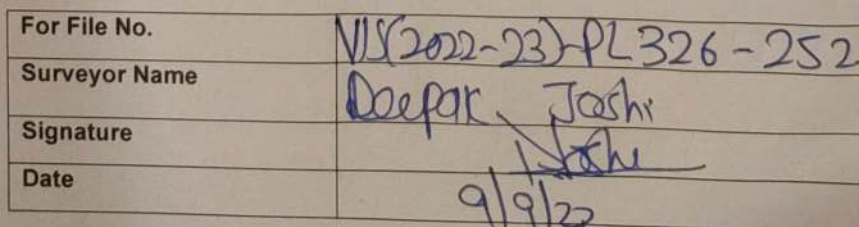 For File No. VIS(2022-23)-PL326-252
Surveyor Name Deepak Joshi
Signature Joshi
Date 9/9/22